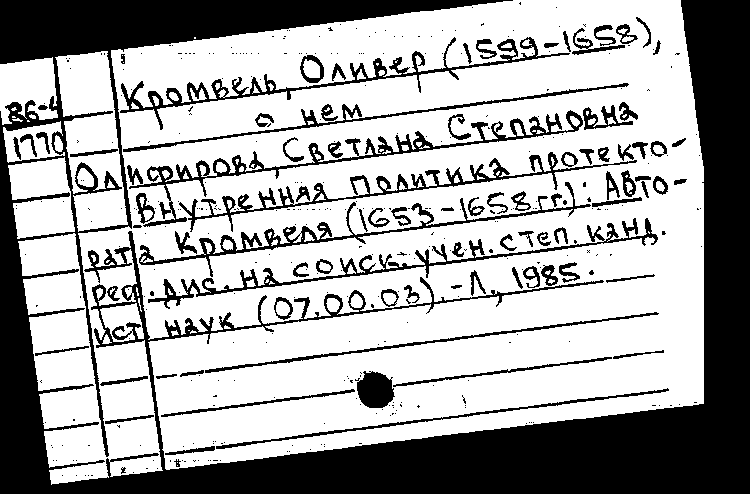 Кромвель, Оливер (1599-1658),
86-4
о нем
1770
Олисфирова, Светлана Степановна
Внутренняя политика протекто-
рата Кромвеля (1653-1658 гг.): Авто-
реф. дис. на соиск. учен. степ. канд.
ист. наук (07.00.03). - Л., 1985.